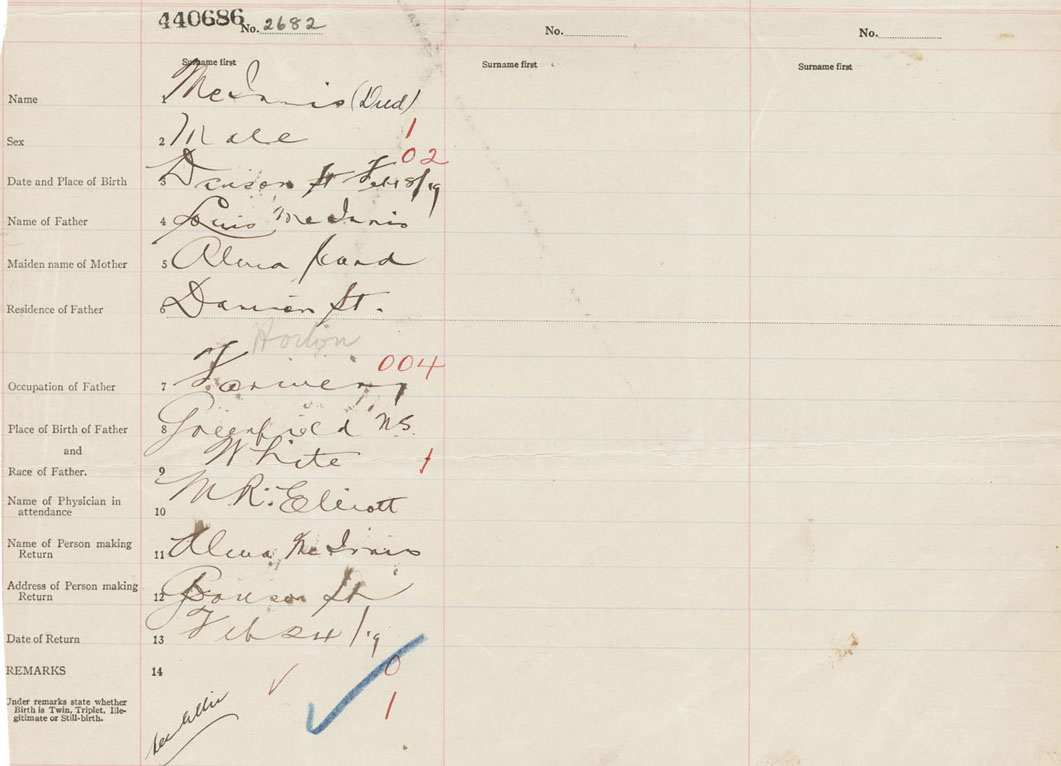 440686 No. 2682 No. No.
Surname first Surname first Surname first
Name 1 McInnis (Died)
Sex 2 Male 1
02
Date and Place of Birth 3 St Feb 18/19
Name of Father 4 Louis McInnis
Maiden name of Mother 5 Alma
Residence of Father 6 St.
Horton
004
Occupation of Father 7 Farmer
Place of Birth of Father 8 Greenfield NS.
and White 1
Race of Father. 9
Name of Physician in M R. Elliott
attendance 10
Name of Person making
Return 11 Alma McInnis
Address of Person making
Return 12 St
Date of Return 13 Feb 24/19
REMARKS 14 0
Under remarks state whether
Birth is Twin, Triplet, Ille-
gitimate or Still-birth. 1